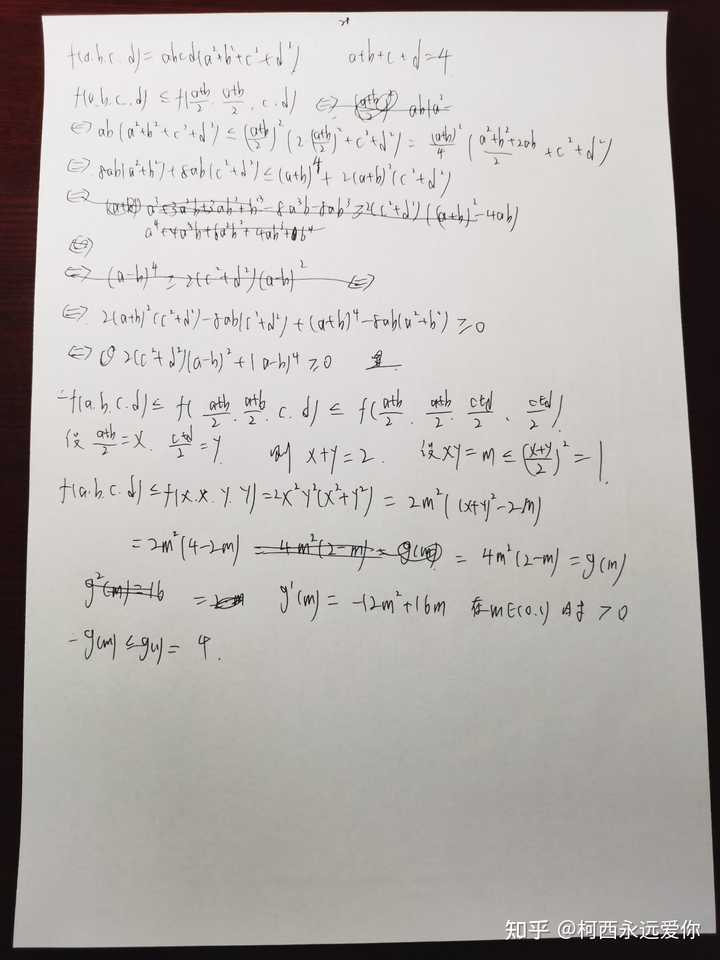 f(a.b.c.d)=abcd(a²+b²+c²+d²) a+b+c+d=4
f(a.b.c.d) ≤ f(\frac{a+b}{2}. \frac{a+b}{2}. c.d)
⇔ ab(a²+b²+c²+d²) ≤ (\frac{a+b}{2})²(2(\frac{a+b}{2})²+c²+d²) = \frac{(a+b)²}{4}(\frac{a²+b²+2ab}{2}+c²+d²)
⇔ 8ab(a²+b²)+8ab(c²+d²) ≤ (a+b)⁴+2(a+b)²(c²+d²)
⇔ (a-b)⁴ ≥ 2(c²+d²)(a-b)² ⇔
⇔ 2(a+b)²(c²+d²)-8ab(c²+d²)+(a+b)⁴-8ab(a²+b²) ≥0
⇔ 2(c²+d²)(a-b)²+(a-b)⁴ ≥0
∴f(a.b.c.d) ≤ f(\frac{a+b}{2}. \frac{a+b}{2}. c.d) ≤ f(\frac{a+b}{2}. \frac{a+b}{2}. \frac{c+d}{2}. \frac{c+d}{2})
设 \frac{a+b}{2}=x. \frac{c+d}{2}=y. 则 x+y=2. 设xy=m ≤ (\frac{x+y}{2})²=1.
f(a.b.c.d) ≤ f(x.x.y.y)=2x²y²(x²+y²) = 2m²((x+y)²-2m)
=2m²(4-2m) = 4m²(2-m) = g(m) = 4m²(2-m) = g(m)
g²(m)=16 g'(m)= -12m²+16m 在m∈(0,1)时 >0
∴g(m) ≤ g(1) = 4.
知乎 @柯西永远爱你